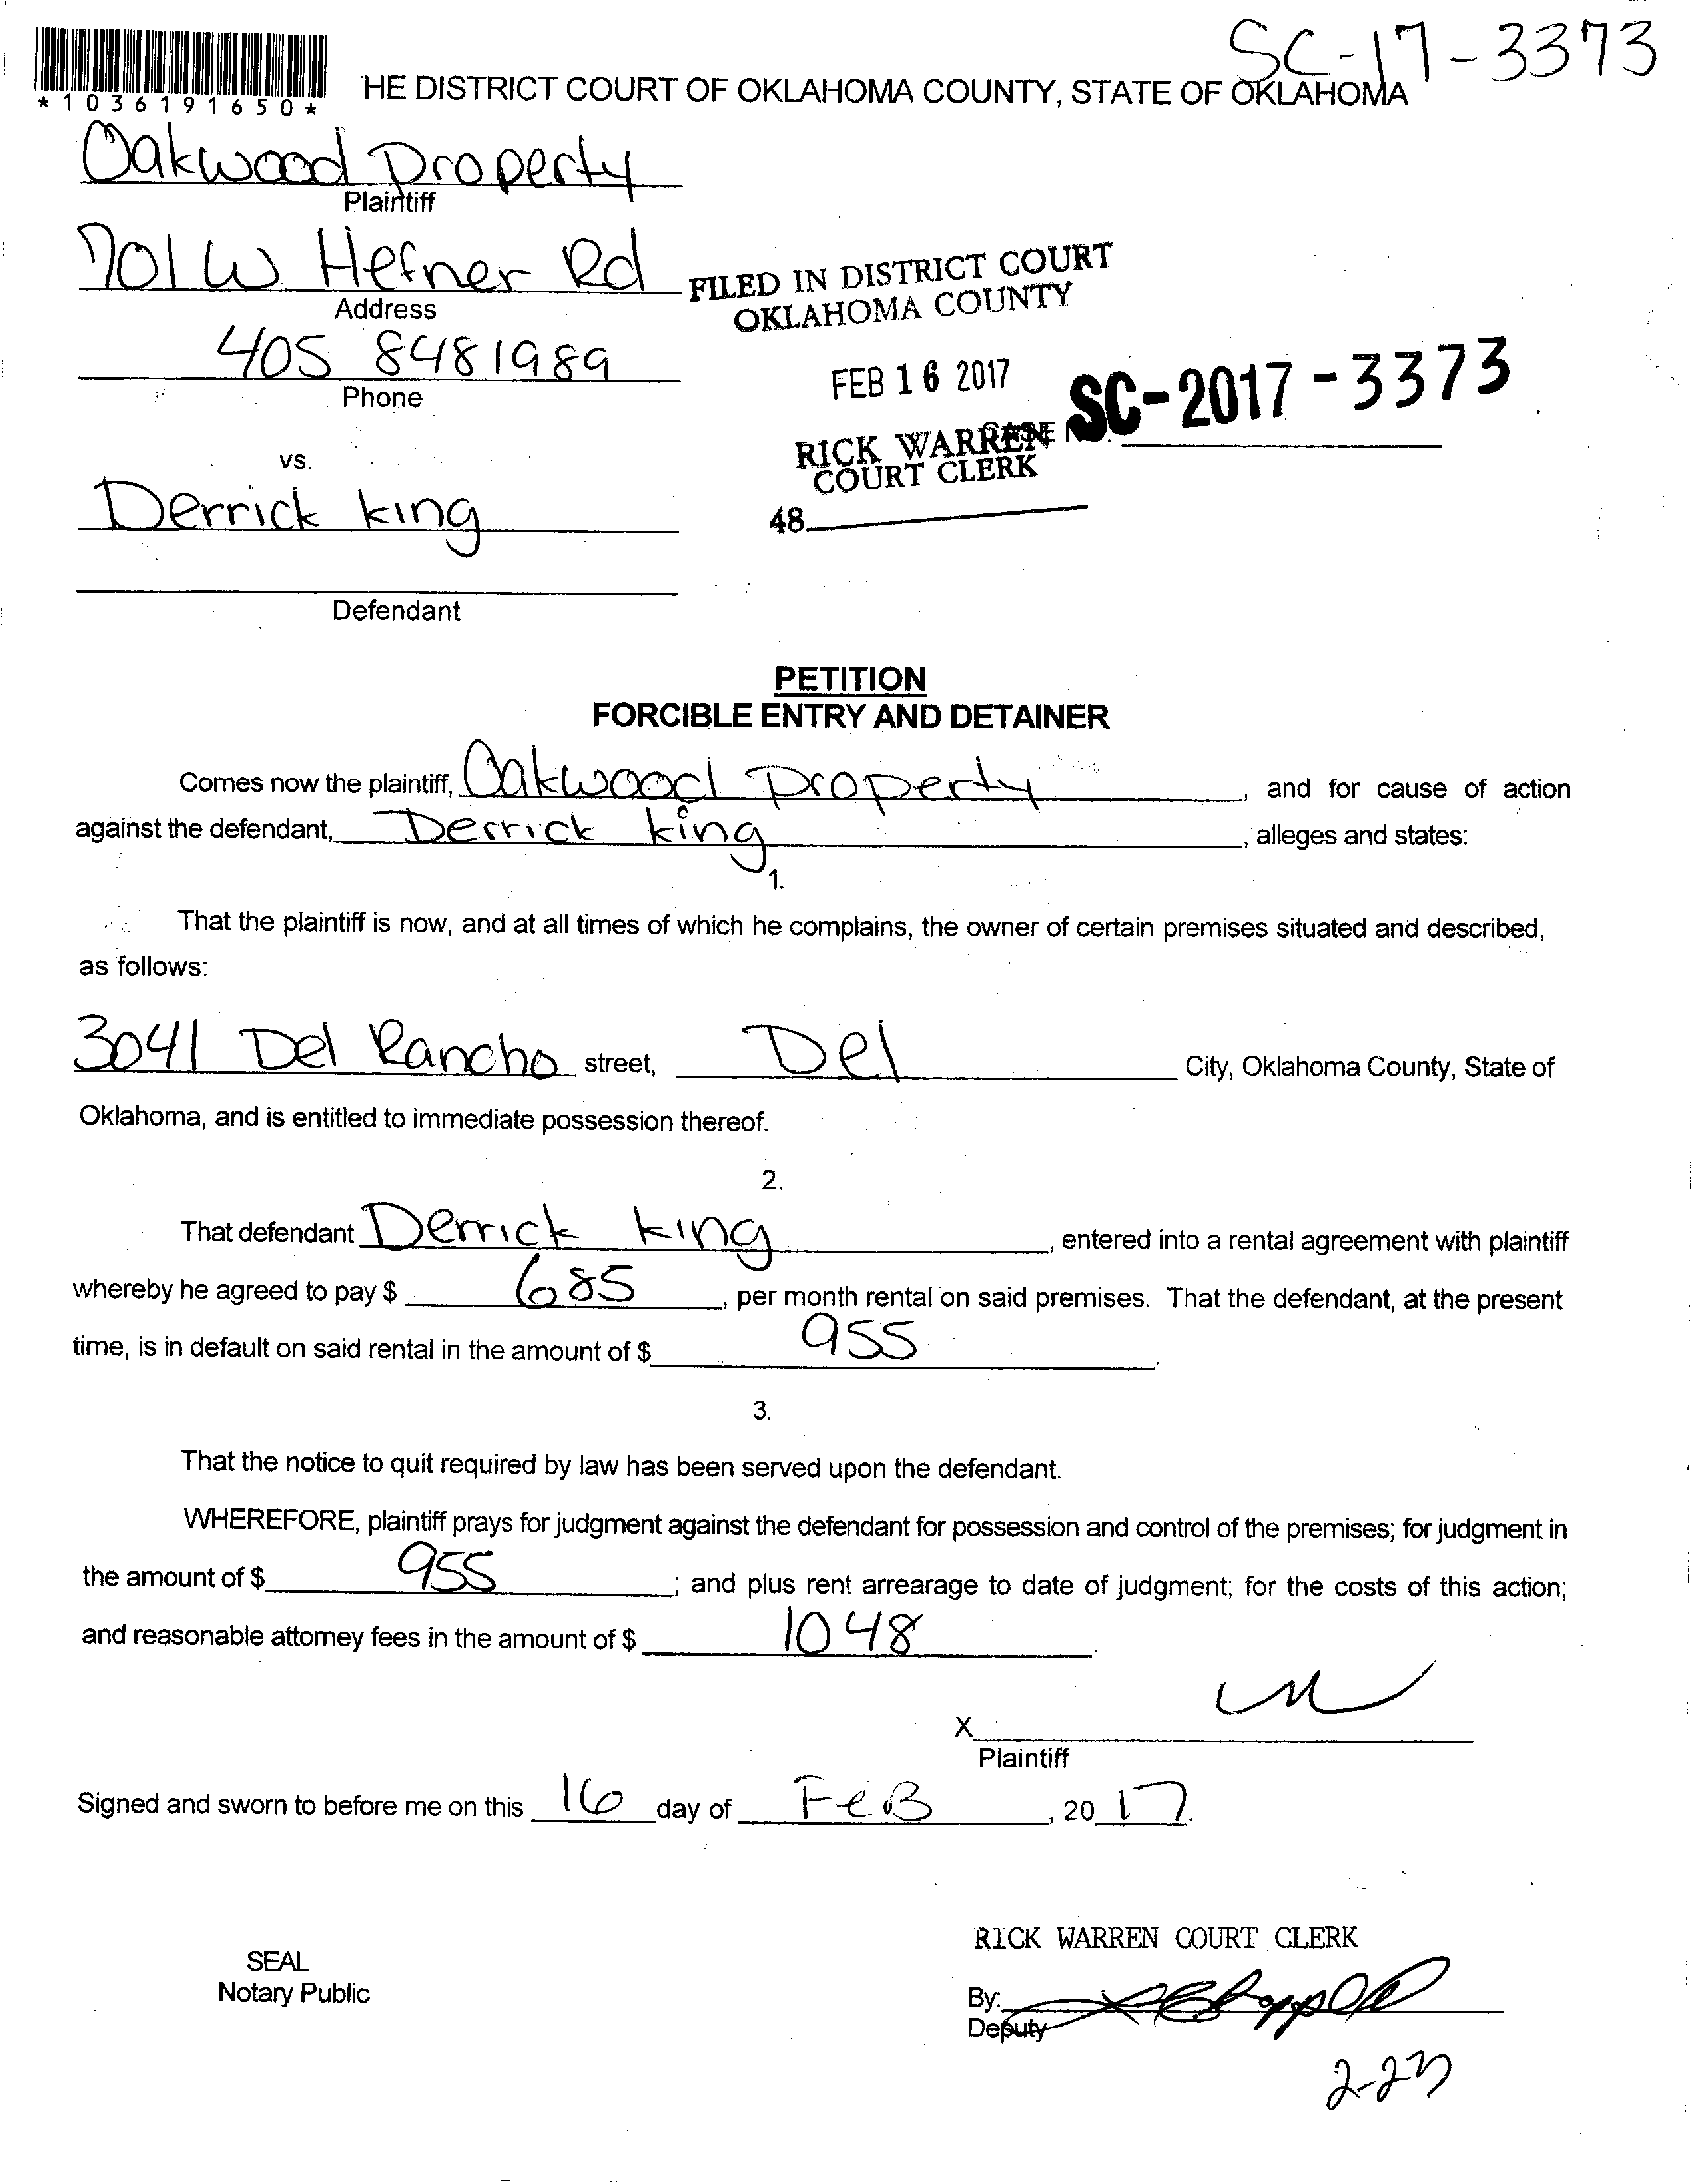 SC-17-3373
*1036191650*
HE DISTRICT COURT OF OKLAHOMA COUNTY, STATE OF OKLAHOMA
Oakwood Property
Plaintiff
701 W Hefner Rd
Address
FILED IN DISTRICT COURT
OKLAHOMA COUNTY
405 8481989
Phone
FEB 16 2017
SC-2017-3373
RICK WARREN
COURT CLERK
vs.
Derrick king
48
Defendant
PETITION
FORCIBLE ENTRY AND DETAINER
Comes now the plaintiff, Oakwood Property, and for cause of action
against the defendant, Derrick king, alleges and states:
1.
That the plaintiff is now, and at all times of which he complains, the owner of certain premises situated and described,
as follows:
3041 Del Rancho street, Del City, Oklahoma County, State of
Oklahoma, and is entitled to immediate possession thereof.
2.
That defendant Derrick king, entered into a rental agreement with plaintiff
whereby he agreed to pay $ 685, per month rental on said premises. That the defendant, at the present
time, is in default on said rental in the amount of $ 955.
3.
That the notice to quit required by law has been served upon the defendant.
WHEREFORE, plaintiff prays for judgment against the defendant for possession and control of the premises; for judgment in
the amount of $ 955; and plus rent arrearage to date of judgment; for the costs of this action;
and reasonable attorney fees in the amount of $ 1048.
X
Plaintiff
Signed and sworn to before me on this 16 day of FeB, 20 17.
RICK WARREN COURT CLERK
SEAL
Notary Public
By:
Deputy
2-23